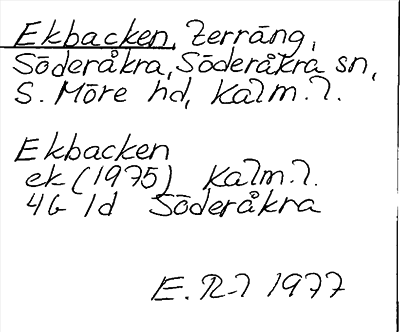 Ekbacken, Terräng,
Söderåkra, Söderåkra sn,
S. Möre hd, Kalm. l.
Ekbacken
ek (1975) Kalm. l.
4G 1d Söderåkra
E. R-l 1977